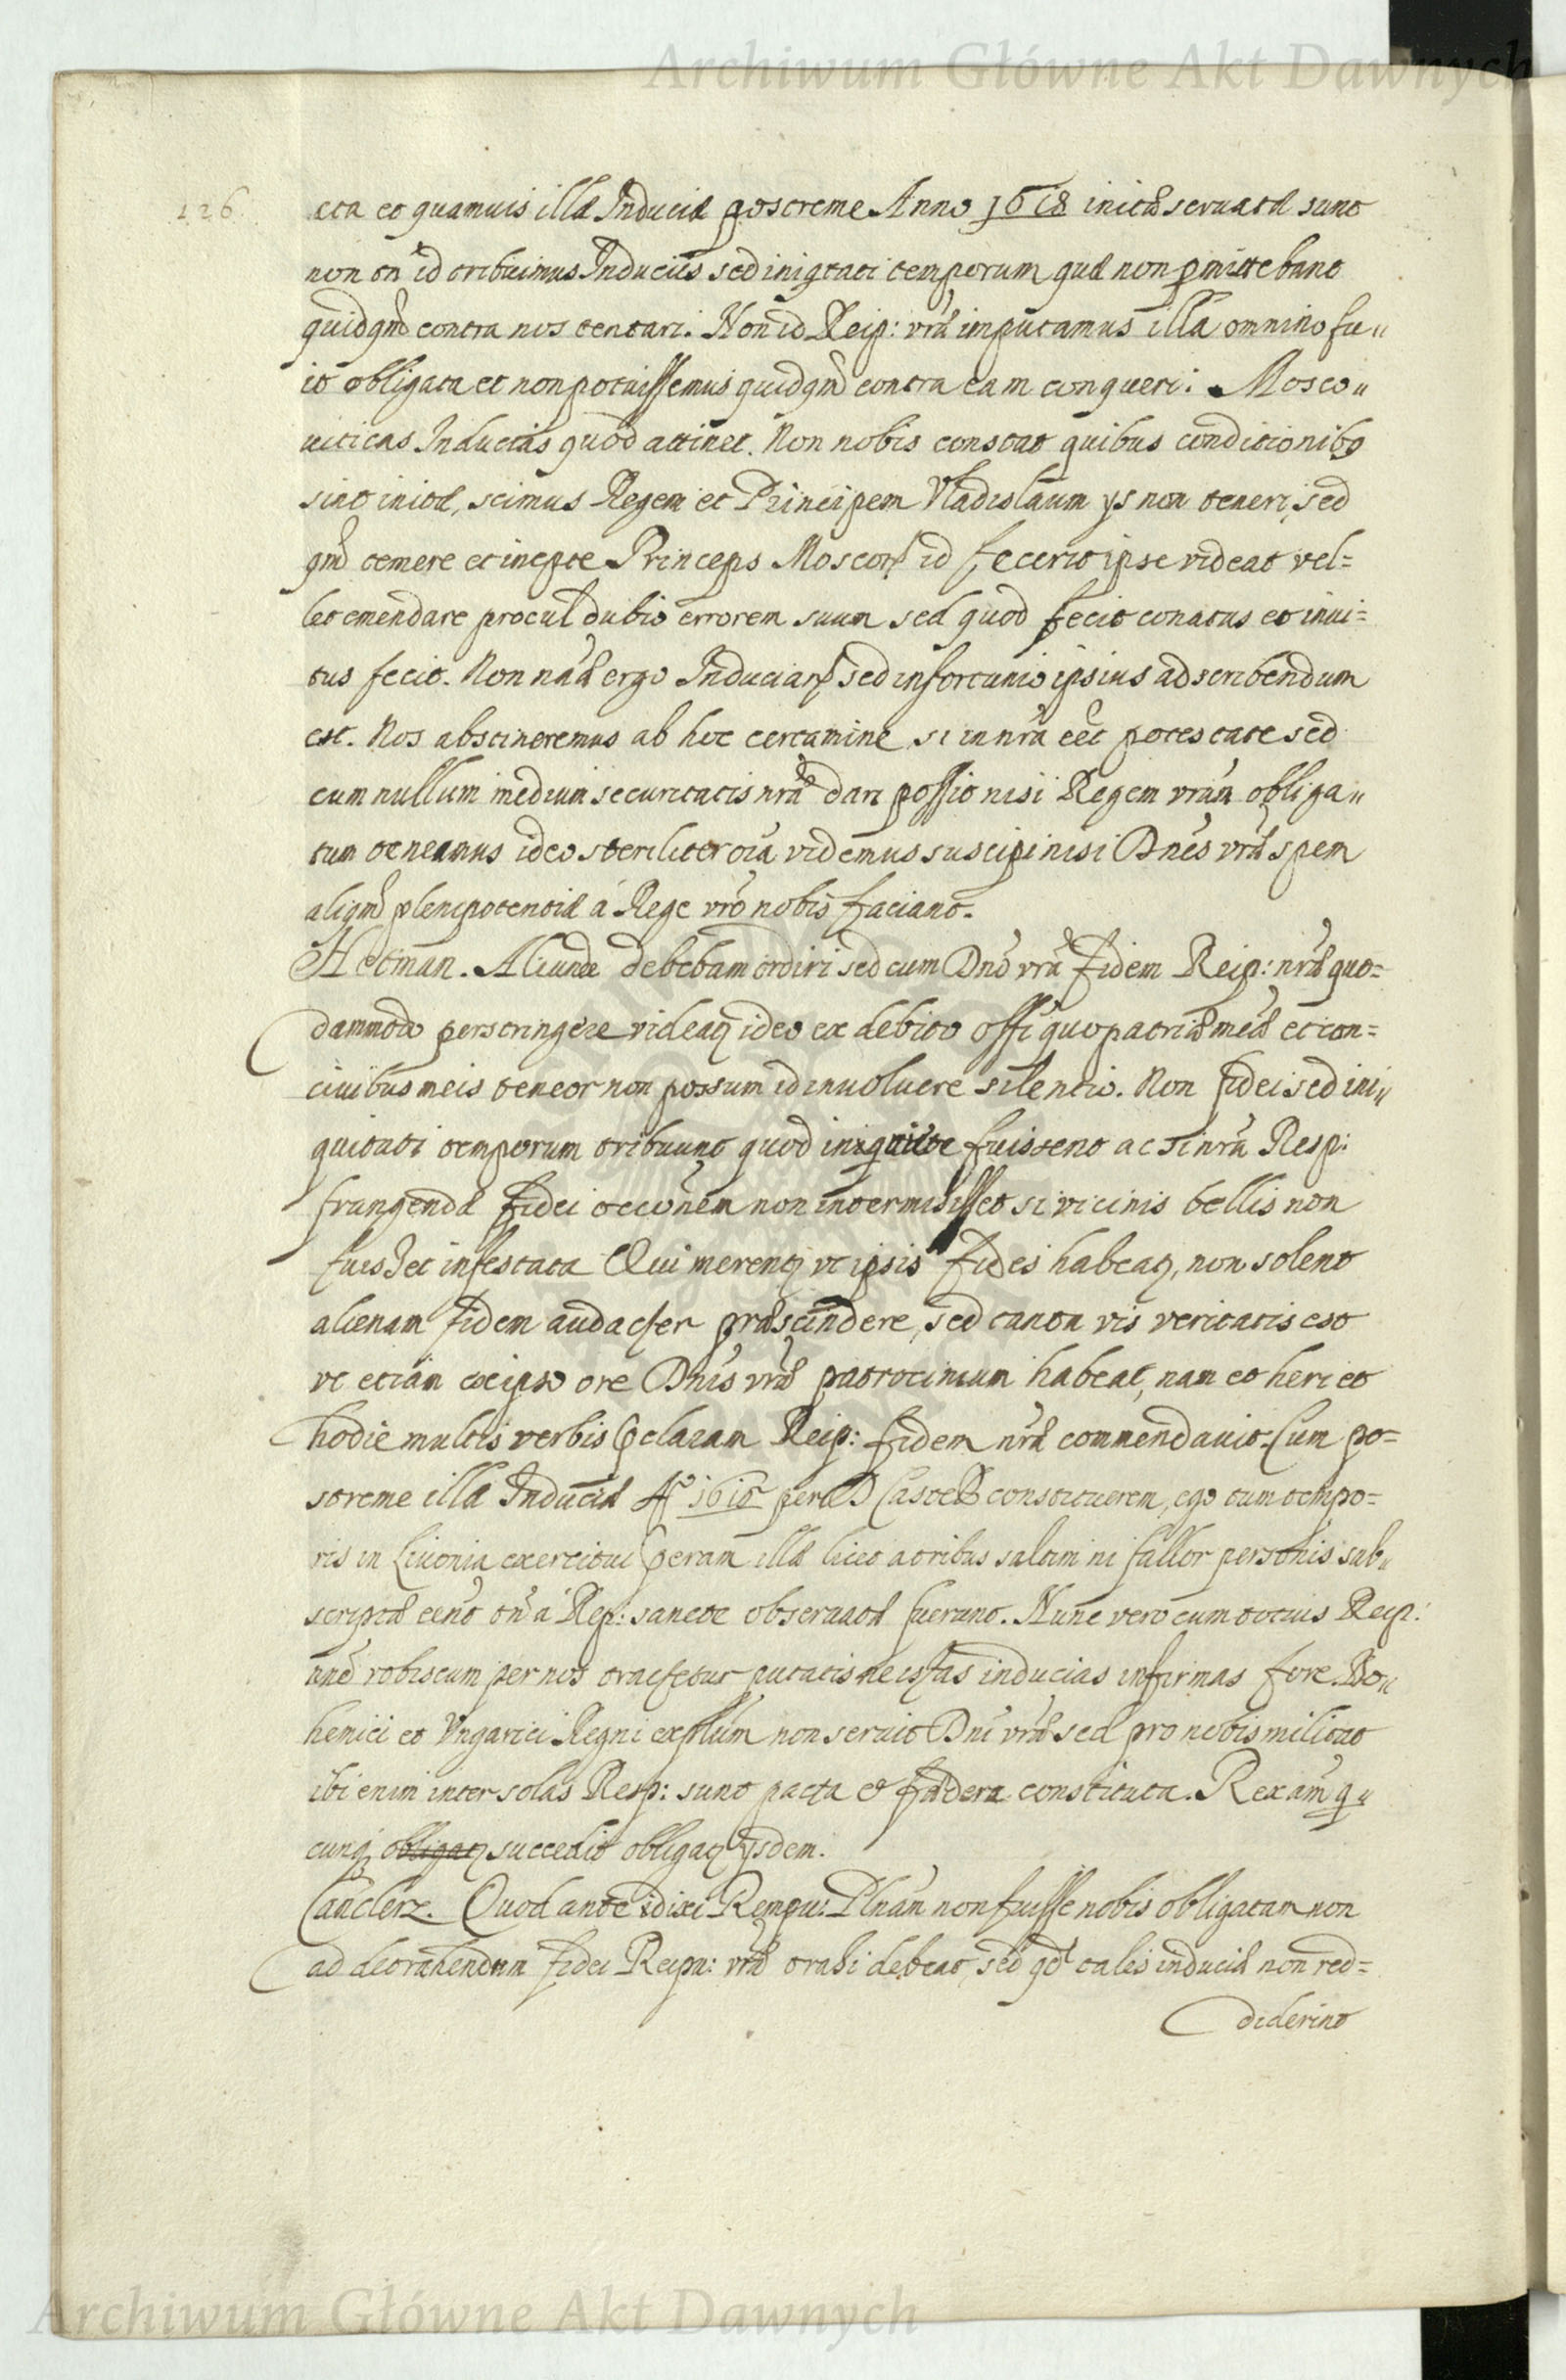 Archiwum Główne Akt Dawnych
126.
cta et quamuis illæ Induciæ postreme Anno 1618 initæ seruatæ sunt
non tñ id tribuimus Inducijs sed iniqtati temporum quæ non pmittebant
quidqm̃ contra nos tentari. Non id Reip: vræ imputamus illa omnino fu„
it obligata et non potuissemus quidqm̃ contra eam conqueri. Mosco„
uiticas Inducias quod attinet. Non nobis constat quibus conditionib9
sint initæ, scimus Regem et Principem Vladislaum ys non teneri, sed
qm̃ temere et inepte Princeps Moscor̃ id fecerit ipse videat vel=
let emendare procul dubio errorem suum sed quod fecit conatus et inui=
tus fecit. Non nræ ergo Induciar̃ sed infortunio ipsius adscribendum
est. Nos abstineremus ab hoc certamine si in nrã eẽt potestate sed
cum nullum medium securitatis nræ dari possit nisi Regem vrũm obliga„
tum teneamus ideo steriliter oĩa videmus suscipi nisi Dnẽs vræ spem
aliqm̃ plenipotentiæ á Rege vrõ nobis faciant.
Hetman. Aliunde debebam ordiri sed cum Dnõ vrã fidem Reip: nræ quo=
dammodo perstringere videaꝫ ideo ex debito offi quo patriæ meæ et con=
ciuibus meis teneor non possum id inuoluere silentio. Non fidei sed ini„
quitati temporum tribuunt quod fuissent ac si nrã Resp:
frangendæ fidei non intermisisset si vicinis bellis non
fuisset infestata Qui merentꝫ vt ipsis fides habeaꝫ, non solent
alienam fidem audacter præscindere, sed tanta vis veritatis est
vt etiam ex ipso ore Dnĩs vræ patrocinium habeat, nam et heri et
hodie multis verbis pclaram Reip: fidem nræ commendauit. Cum po=
streme illæ Induciæ Aº 1618 per D Castel constituerem, ego tum tempo=
ris in Liuonia exercitui peram illæ licet a tribus saltim ni fallor personis sub„
scriptæ eẽnt tñ á Rep: sancte obseruatæ fuerunt. Nunc vero cum totius Reip:
nñe vobiscum per nos tractetur putatis ne istas inducias infirmas fore. Bo„
hemici et Vngarici Regni explũm non seruit Dni vræ sed pro nobis militat
ibi enim inter solas Resp: sunt pacta et fædera constituta. Rex añi q„
cunqꝫ obligaꝫ succedit obligaꝫ ysdem.
Canclerz. Quod ante dixi Rempu: Plnam non fuisse nobis obligatam non
ad detrahendum fidei Reipu: vræ trahi debeat, sed qd tales induciæ non red=
diderint
Archiwum Główne Akt Dawnych